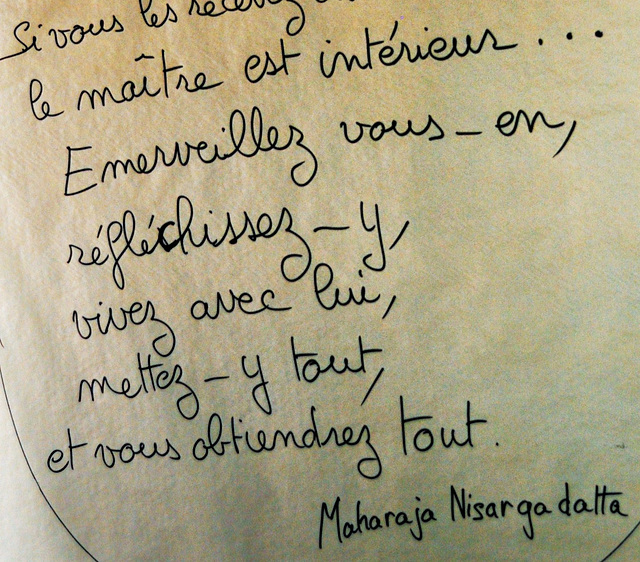 Si vous les recevez
le maître est intérieur...
Emerveillez vous-en,
réfléchissez-y,
vivez avec lui,
mettez-y tout,
et vous obtiendrez tout.
Maharaja Nisargadatta